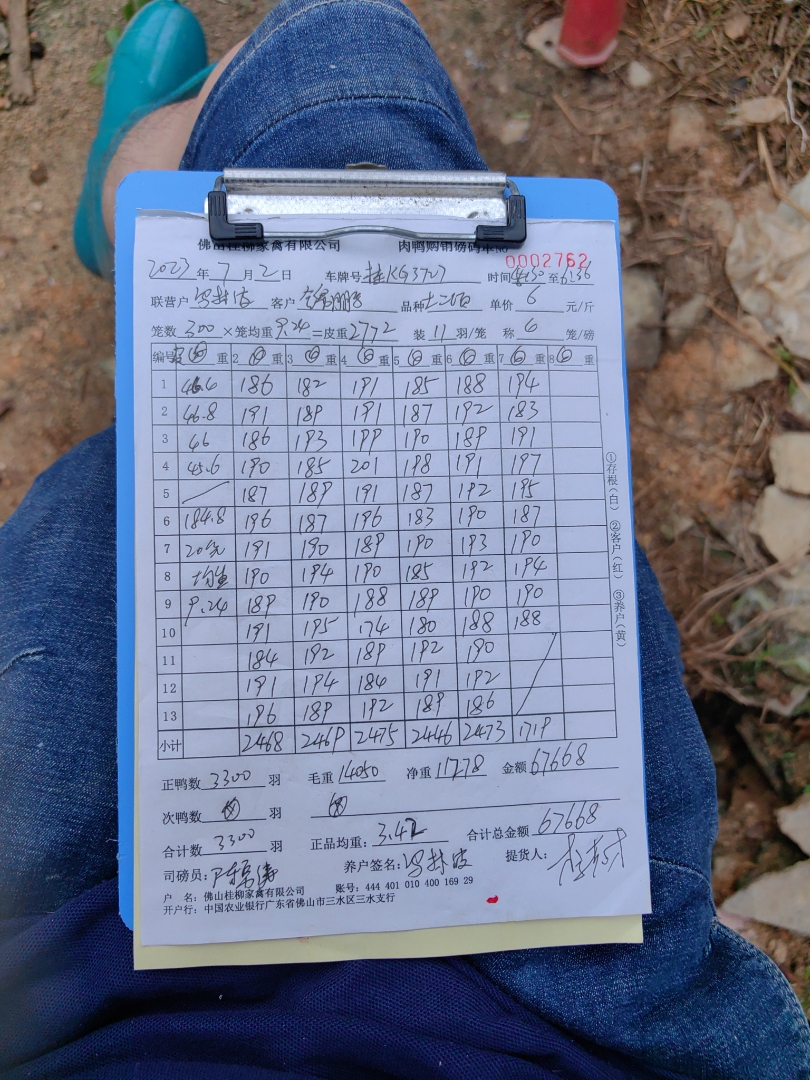 佛山桂柳家禽有限公司 肉鸭购销磅码单
0002762
2023年7月2日 车牌号 桂KG3727 时间 至
联营户 客户 品种 单价 6 元/斤
笼数 300 ×笼均重 9.24 =皮重 2772 装 11 羽/笼 称 6 笼/磅
编号 重 2 ⑥ 重 3 ⑥ 重 4 ⑥ 重 5 ⑥ 重 6 ⑥ 重 7 ⑥ 重 8 ⑥ 重
1 46.6 186 182 191 185 188 194
2 46.8 191 189 191 187 192 183
3 46 186 193 199 190 189 191
4 45.6 190 185 201 198 191 197
5 187 189 191 187 192 195
6 184.8 196 187 196 183 190 187
7 20笼 191 190 189 190 193 190
8 均重 190 194 190 185 192 194
9 9.24 189 190 188 189 190 190
10 191 195 174 180 188 188
11 184 192 189 192 190
12 191 194 184 191 192
13 196 189 192 189 186
小计 2468 2469 2475 2446 2473 1719
正鸭数 3300 羽 毛重 14050 净重 11278 金额 67668
次鸭数 羽
合计数 3300 羽 正品均重: 3.42 合计总金额 67668
司磅员: 养户签名: 提货人:
户 名: 佛山桂柳家禽有限公司 账号: 444 401 010 400 169 29
开户行: 中国农业银行广东省佛山市三水区三水支行
①存根(白) ②客户(红) ③养户(黄)